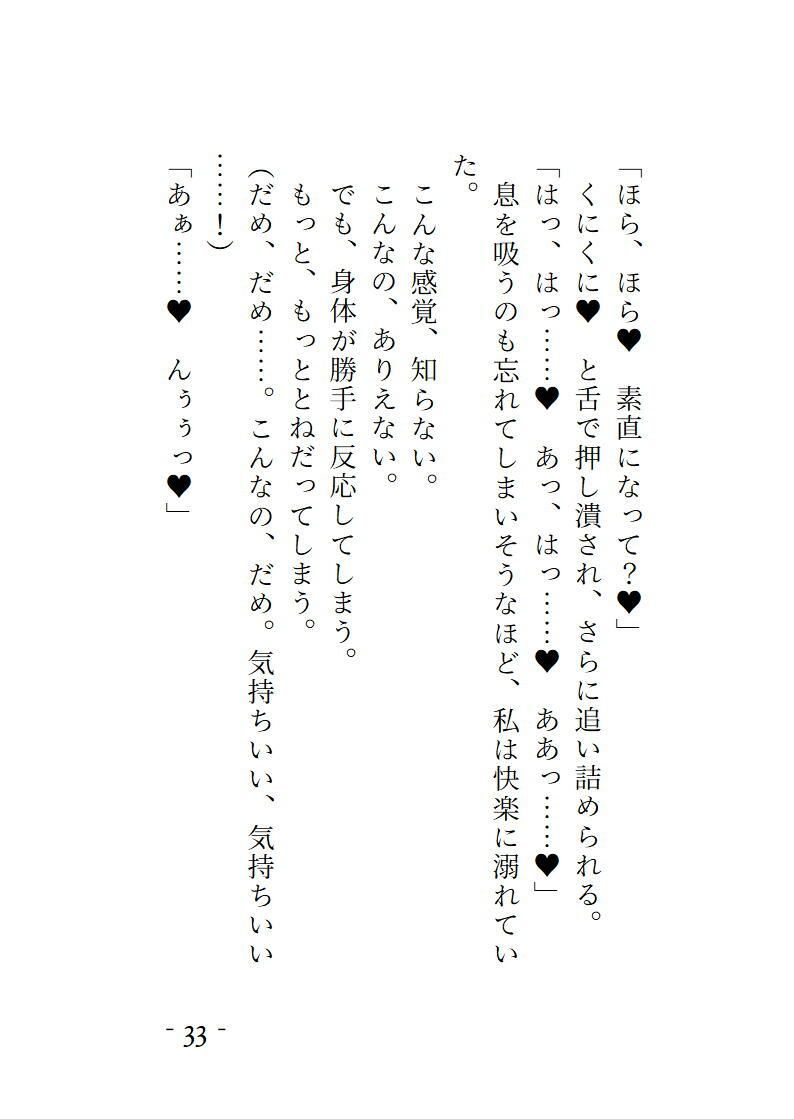 「ほら、ほら♥　素直になって？♥」
くにくに♥　と舌で押し潰され、さらに追い詰められる。
「はっ、はっ……♥　あっ、はっ……♥　ああっ……♥」
息を吸うのも忘れてしまいそうなほど、私は快楽に溺れてい
た。
こんな感覚、知らない。
こんなの、ありえない。
でも、身体が勝手に反応してしまう。
もっと、もっととねだってしまう。
(だめ、だめ……。こんなの、だめ。気持ちいい、気持ちいい
……！)
「あぁ……♥　んぅぅっ♥」
- 33 -